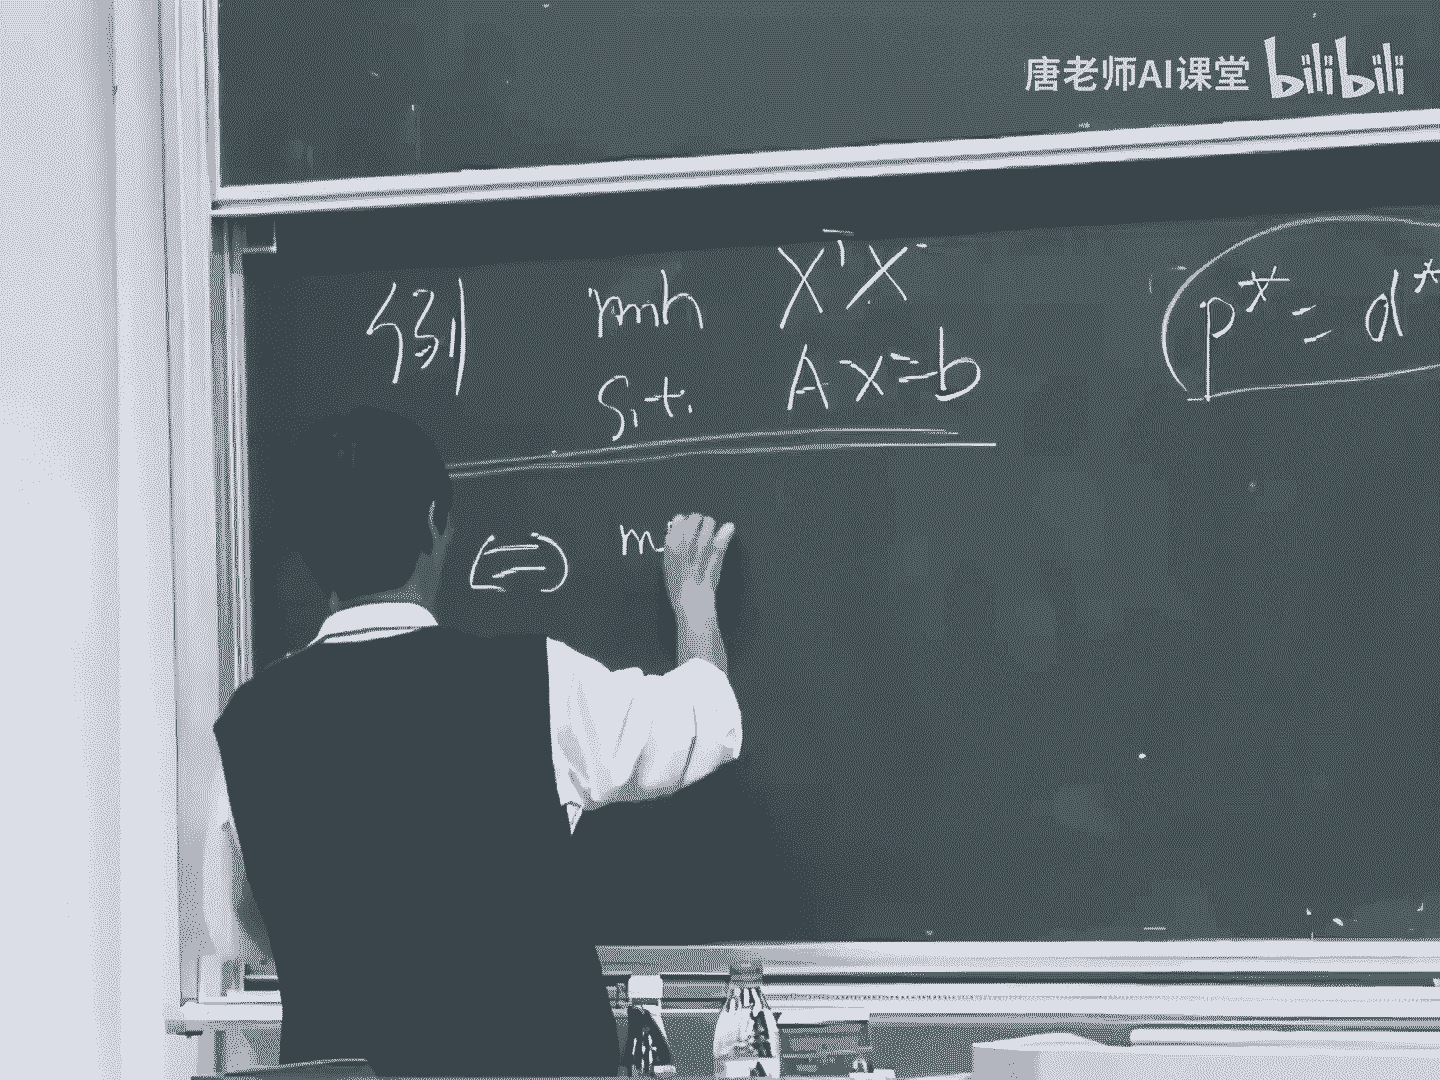 唐老师AI课堂 bilibili
例 min XᵀX
s.t. Ax=b
p*=d*
(二) m